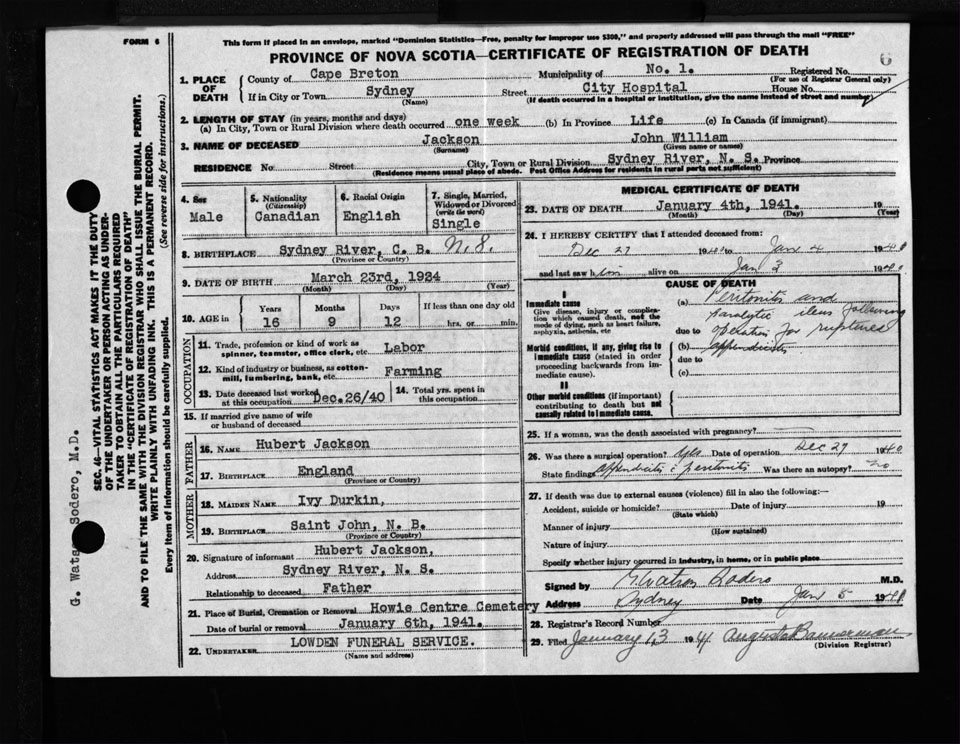 FORM 6
This form if placed in an envelope, marked "Dominion Statistics—Free, penalty for improper use $300," and properly addressed will pass through the mail "FREE"
PROVINCE OF NOVA SCOTIA—CERTIFICATE OF REGISTRATION OF DEATH
6
1. PLACE OF DEATH
County of Cape Breton Municipality of No. 1. Registered No.
(For use of Registrar General only)
If in City or Town Sydney Street City Hospital House No.
(Name) (If death occurred in a hospital or institution, give the name instead of street and number)
2. LENGTH OF STAY (in years, months and days)
(a) In City, Town or Rural Division where death occurred one week (b) In Province Life (c) In Canada (if immigrant)
3. NAME OF DECEASED Jackson John William
(Surname) (Given name or names)
RESIDENCE No Street City, Town or Rural Division Sydney River, N. S. Province
(Residence means usual place of abode. Post Office Address for residents in rural parts not sufficient)
4. Sex
Male
5. Nationality
(Citizenship)
Canadian
6. Racial Origin
English
7. Single, Married, Widowed or Divorced
(write the word)
Single
8. BIRTHPLACE Sydney River, C. B. N.S.
(Province or Country)
9. DATE OF BIRTH March 23rd, 1924
(Month) (Day) (Year)
10. AGE in Years Months Days If less than one day old
16 9 12 hrs. or min.
OCCUPATION
11. Trade, profession or kind of work as spinner, teamster, office clerk, etc. Labor
12. Kind of industry or business, as cotton-mill, lumbering, bank, etc. Farming
13. Date deceased last worked at this occupation Dec.26/40
14. Total yrs. spent in this occupation
15. If married give name of wife or husband of deceased
FATHER
16. NAME Hubert Jackson
17. BIRTHPLACE England
(Province or Country)
MOTHER
18. MAIDEN NAME Ivy Durkin,
19. BIRTHPLACE Saint John, N. B.
(Province or Country)
20. Signature of informant Hubert Jackson,
Address Sydney River, N. S.
Relationship to deceased Father
21. Place of Burial, Cremation or Removal Howie Centre Cemetery
Date of burial or removal January 6th, 1941.
22. UNDERTAKER LOWDEN FUNERAL SERVICE.
(Name and address)
MEDICAL CERTIFICATE OF DEATH
23. DATE OF DEATH January 4th, 1941. 19
(Month) (Day) (Year)
24. I HEREBY CERTIFY that I attended deceased from:
Dec 27 1940 to Jan 4 1940
and last saw him alive on Jan 3 1940
CAUSE OF DEATH
I
Immediate cause
Give disease, injury or complication which caused death, not the mode of dying, such as heart failure, asphyxia, asthenia, etc
(a) Peritonitis and
paralytic ileus following
due to operation for ruptured
Morbid conditions, if any, giving rise to immediate cause (stated in order proceeding backwards from immediate cause).
(b) appendicitis
due to
(c)
II
Other morbid conditions (if important) contributing to death but not causally related to immediate cause.
25. If a woman, was the death associated with pregnancy?
26. Was there a surgical operation? Yes Date of operation Dec 27 1940
State findings appendicitis & peritonitis Was there an autopsy? no
27. If death was due to external causes (violence) fill in also the following:—
Accident, suicide or homicide? Date of injury 19
(State which)
Manner of injury
(How sustained)
Nature of injury
Specify whether injury occurred in industry, in home, or in public place
Signed by G Watson Sodero M.D.
Address Sydney Date Jan 5 1940
28. Registrar's Record Number
29. Filed January 13 1941 Bannerman
(Division Registrar)
G. Wats Sodero, M.D.
SEC. 46—VITAL STATISTICS ACT MAKES IT THE DUTY
OF THE UNDERTAKER OR PERSON ACTING AS UNDER-
TAKER TO OBTAIN ALL THE PARTICULARS REQUIRED
IN THE "CERTIFICATE OF REGISTRATION OF DEATH"
AND TO FILE THE SAME WITH THE DIVISION REGISTRAR WHO SHALL ISSUE THE BURIAL PERMIT.
WRITE PLAINLY WITH UNFADING INK. THIS IS A PERMANENT RECORD.
Every item of information should be carefully supplied. (See reverse side for instructions.)